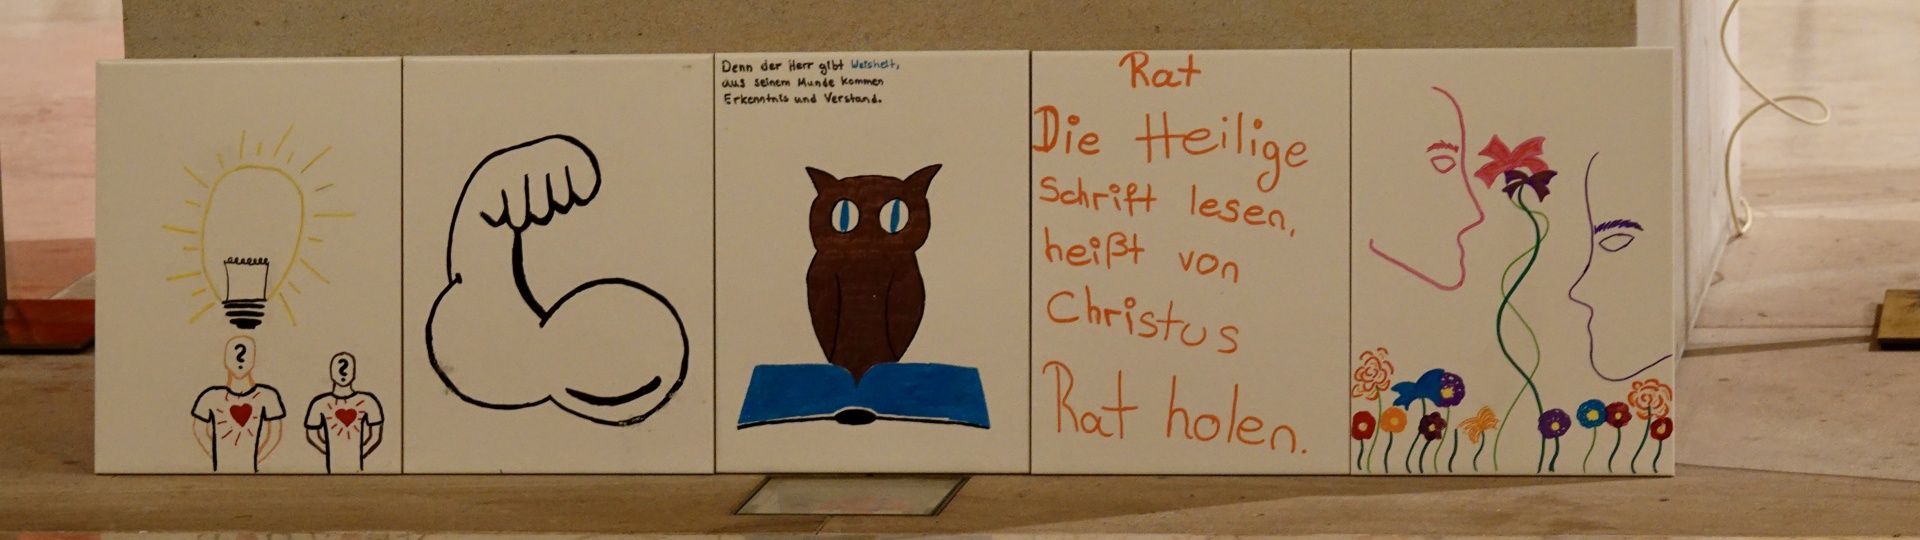 Denn der Herr gibt Weisheit,
aus seinem Munde kommen
Erkenntnis und Verstand.
Rat
Die Heilige
Schrift lesen,
heißt von
Christus
Rat holen.
?
?